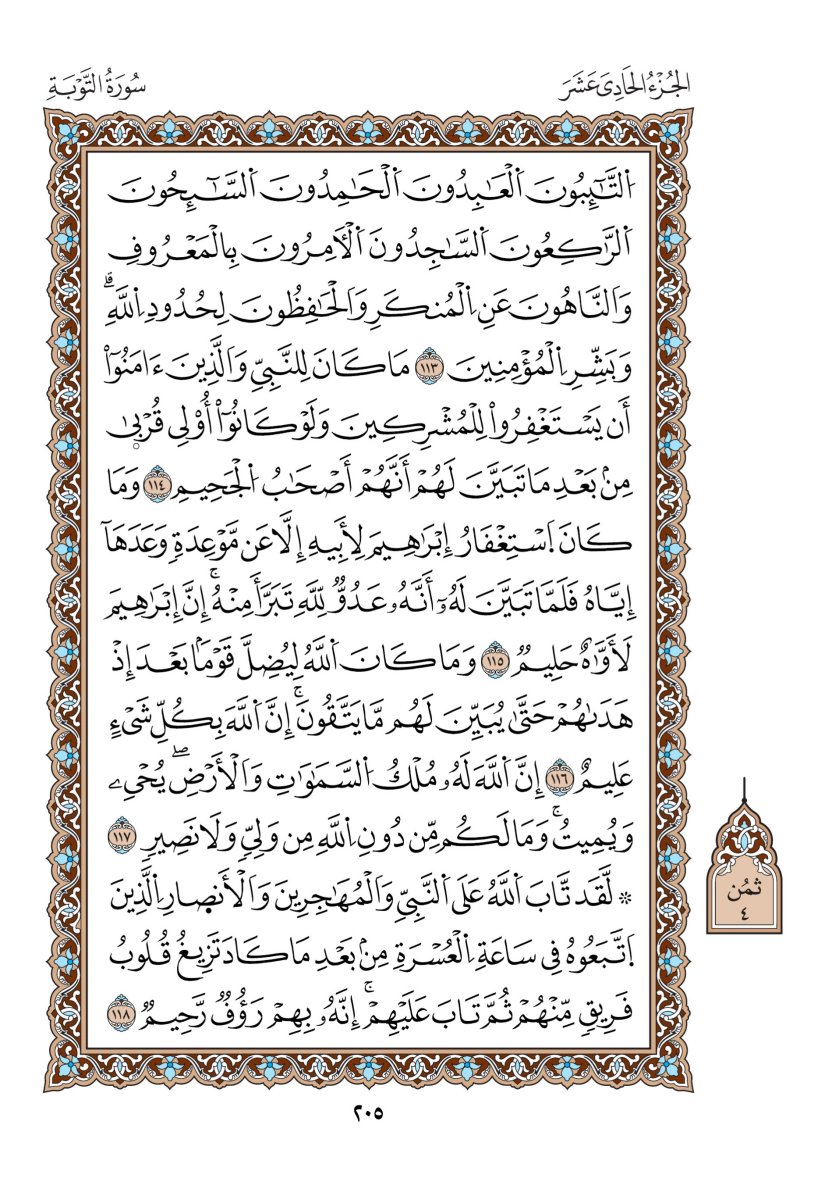 الجُزْءُ الحَادِى عَشَرَ
سُورَةُ التَّوْبَةِ
اَ۬لتَّٰٓئِبُونَ اَ۬لْعَٰبِدُونَ اَ۬لْحَٰمِدُونَ اَ۬لسَّٰٓئِحُونَ
اَ۬لرَّٰكِعُونَ اَ۬لسَّٰجِدُونَ اَ۬لْأٓمِرُونَ بِالْمَعْرُوفِ
وَالنَّاهُونَ عَنِ اِ۬لْمُنكَرِ وَالْحَٰفِظُونَ لِحُدُودِ اِ۬للَّهِۗ
وَبَشِّرِ اِ۬لْمُؤْمِنِينَ ١١٣ مَا كَانَ لِلنَّبِيِّ وَالَّذِينَ ءَامَنُوٓاْ
أَن يَسْتَغْفِرُواْ لِلْمُشْرِكِينَ وَلَوْ كَانُوٓاْ أُوْلِى قُرْبٜىٰ
مِنۢ بَعْدِ مَا تَبَيَّنَ لَهُمْ أَنَّهُمْ أَصْحَٰبُ اُ۬لْجَحِيمِ ١١٤ وَمَا
كَانَ اَ۪سْتِغْفَارُ إِبْرَٰهِيمَ لِأَبِيهِ إِلَّا عَن مَّوْعِدَةٖ وَعَدَهَآ
إِيَّاهُ فَلَمَّا تَبَيَّنَ لَهُۥٓ أَنَّهُۥ عَدُوّٞ لِّلَّهِ تَبَرَّأَ مِنْهُۚ إِنَّ إِبْرَٰهِيمَ
لَأَوَّٰهٌ حَلِيمٞ ١١٥ وَمَا كَانَ اَ۬للَّهُ لِيُضِلَّ قَوْمَۢا بَعْدَ إِذْ
هَدَىٰهُمْ حَتَّىٰ يُبَيِّنَ لَهُم مَّا يَتَّقُونَۚ إِنَّ اَ۬للَّهَ بِكُلِّ شَيْءٍ
عَلِيمٌ ١١٦ إِنَّ اَ۬للَّهَ لَهُۥ مُلْكُ اُ۬لسَّمَٰوَٰتِ وَالْأَرْضِۖ يُحْىِۦ
وَيُمِيتُۚ وَمَا لَكُم مِّن دُونِ اِ۬للَّهِ مِن وَلِيّٖ وَلَا نَصِيرٖ ١١٧
۞ لَّقَد تَّابَ اَ۬للَّهُ عَلَى اَ۬لنَّبِيِّ وَالْمُهَٰجِرِينَ وَالْأَنصٜارِ اِ۬لَّذِينَ
اَ۪تَّبَعُوهُ فِى سَاعَةِ اِ۬لْعُسْرَةِ مِنۢ بَعْدِ مَا كَادَ تَزِيغُ قُلُوبُ
فَرِيقٖ مِّنْهُمْ ثُمَّ تَابَ عَلَيْهِمْۚ إِنَّهُۥ بِهِمْ رَؤُفٞ رَّحِيمٞ ١١٨
ثُمُن
٤
٢٠٥